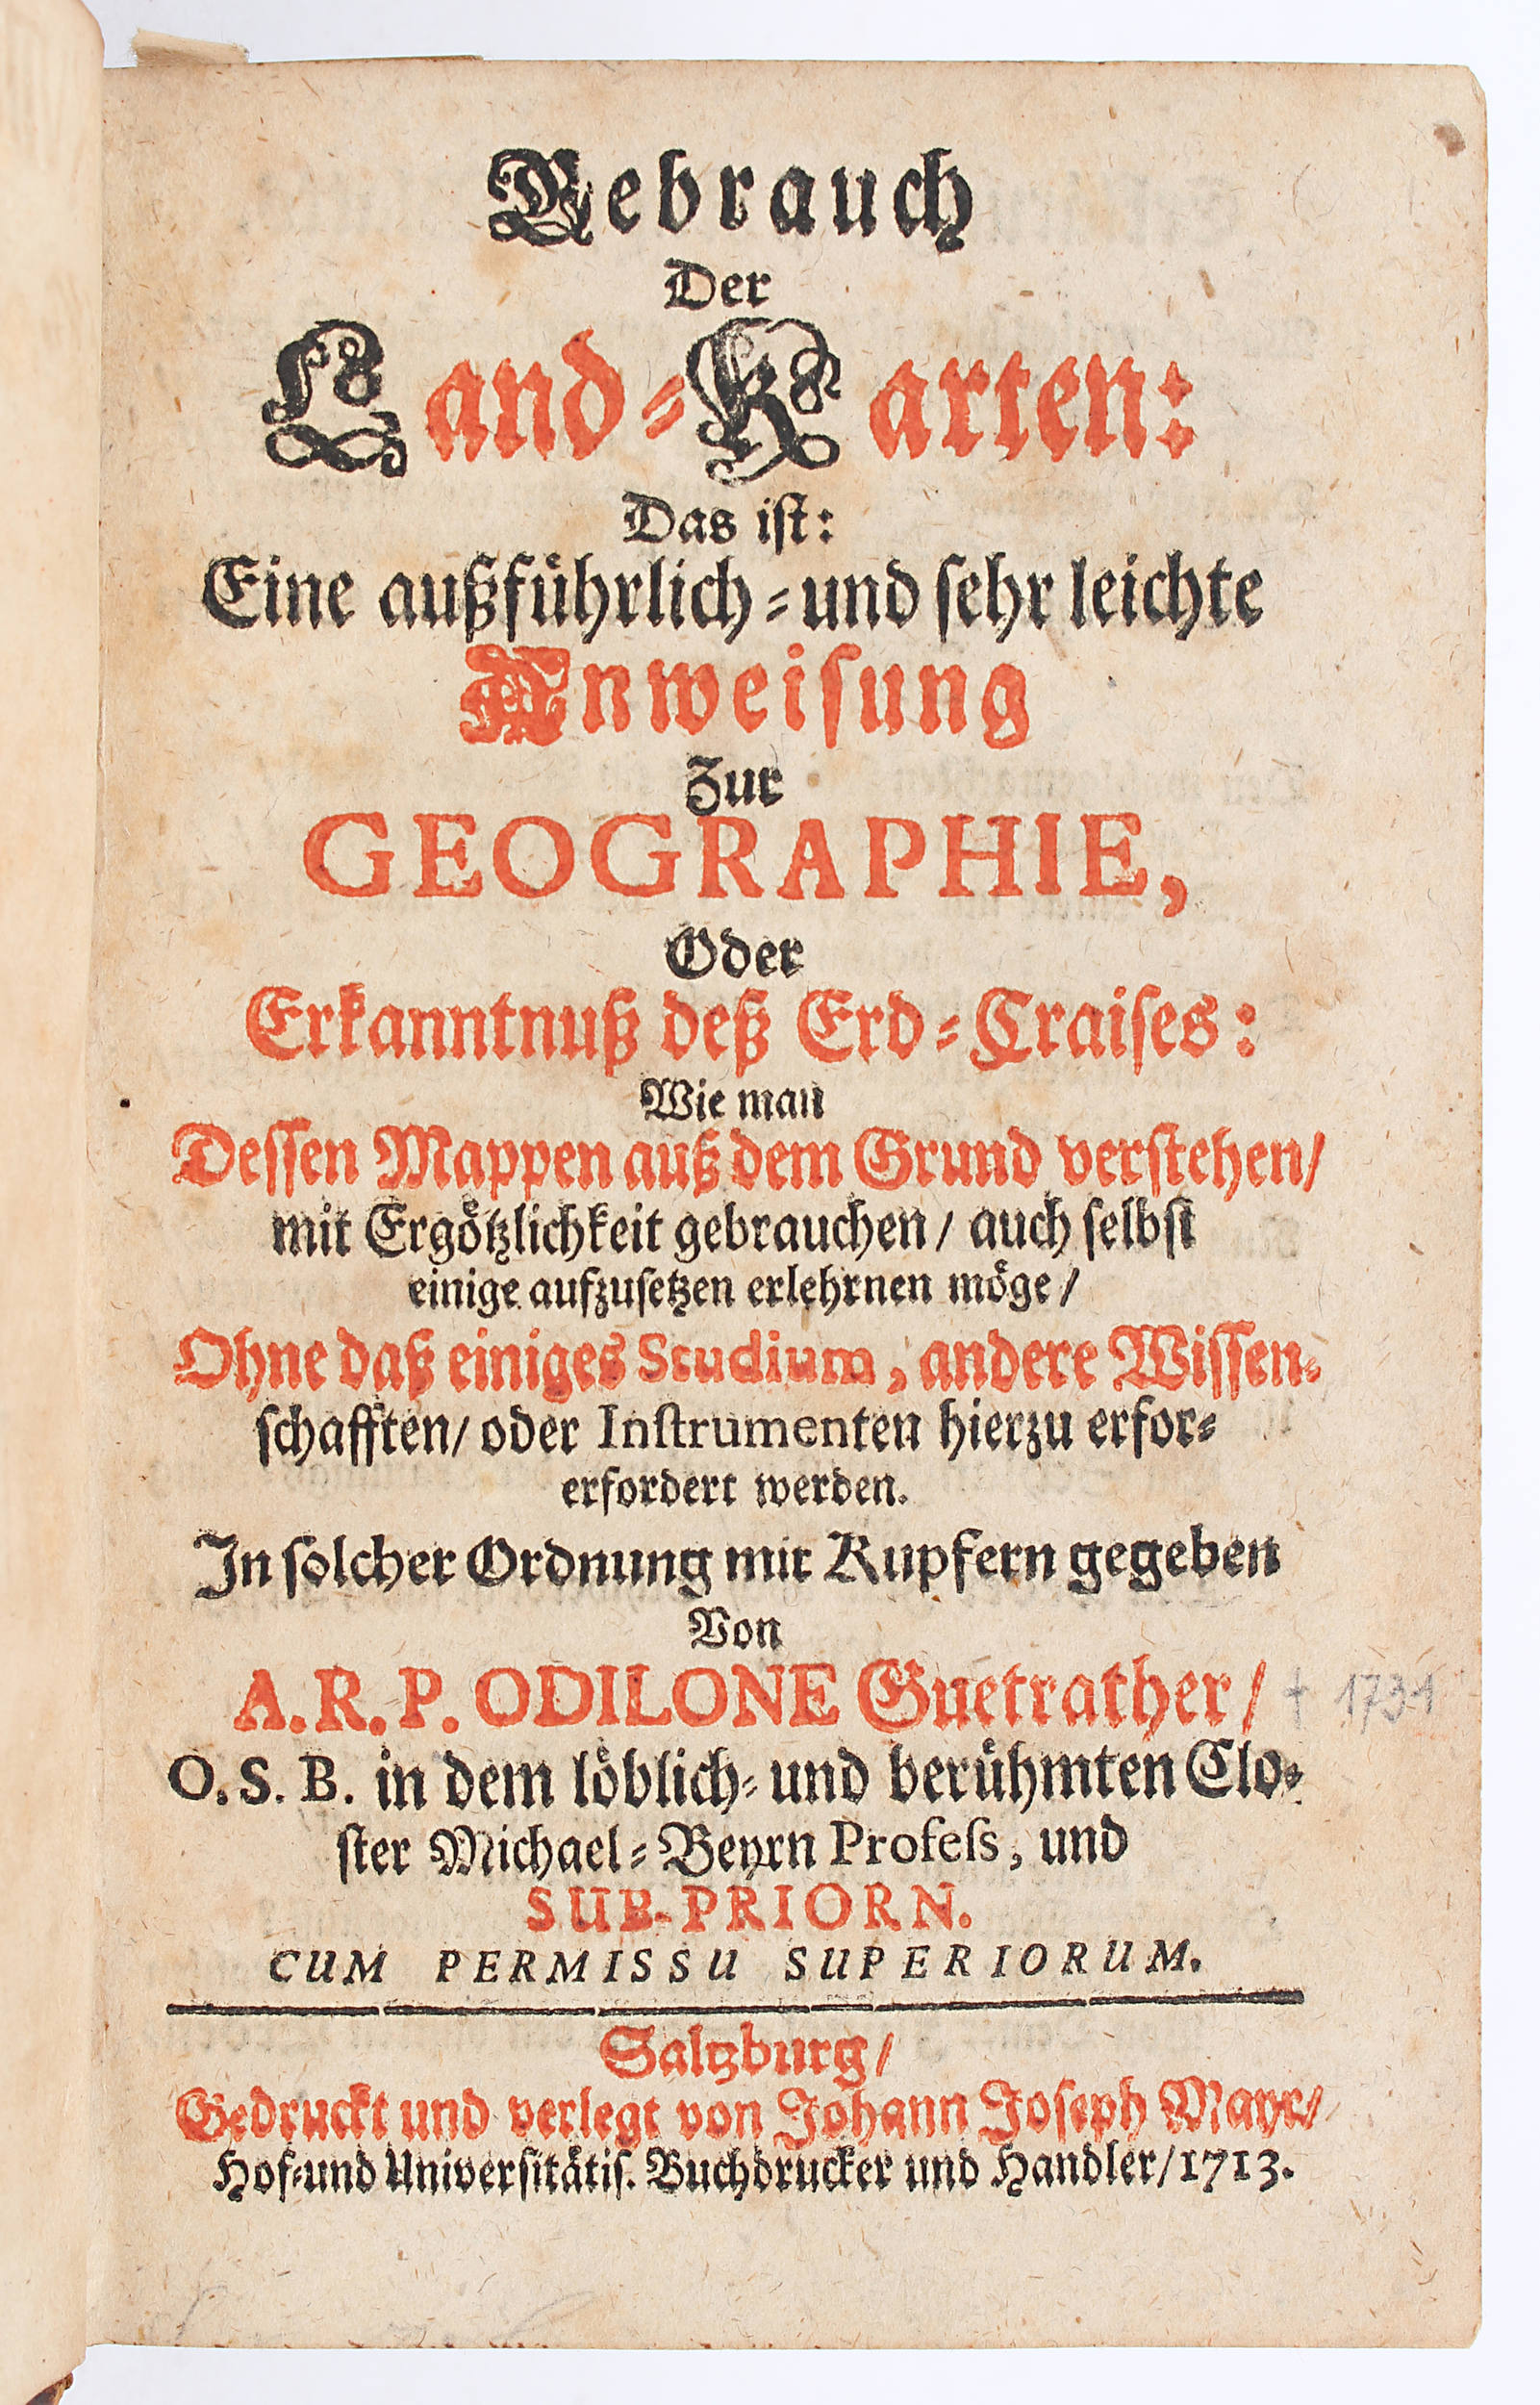 Gebrauch
Der
Land-Karten:
Das ist:
Eine außführlich-und sehr leichte
Anweisung
Zur
GEOGRAPHIE,
Oder
Erkanntnuß deß Erd-Craises:
Wie man
Dessen Mappen auß dem Grund verstehen/
mit Ergötzlichkeit gebrauchen/ auch selbst
einige aufzusetzen erlehrnen möge/
Ohne daß einiges Studium, andere Wissen-
schafften/ oder Instrumenten hierzu erfor-
erfordert werden.
In solcher Ordnung mit Kupfern gegeben
Von
A.R.P. ODILONE Guetrather/ † 1731
O.S.B. in dem löblich-und berühmten Clo-
ster Michael-Beyrn Profess, und
SUB-PRIORN.
CUM PERMISSU SUPERIORUM.
Saltzburg/
Gedruckt und verlegt von Johann Joseph Mayr/
Hof-und Universitätis. Buchdrucker und Handler/1713.